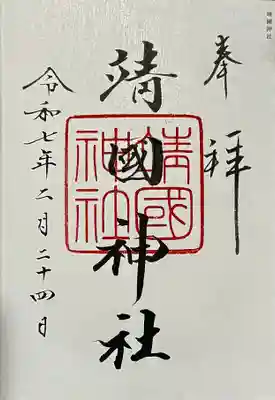 靖國神社
奉拝
靖國神社
靖國神社
令和七年二月二十四日